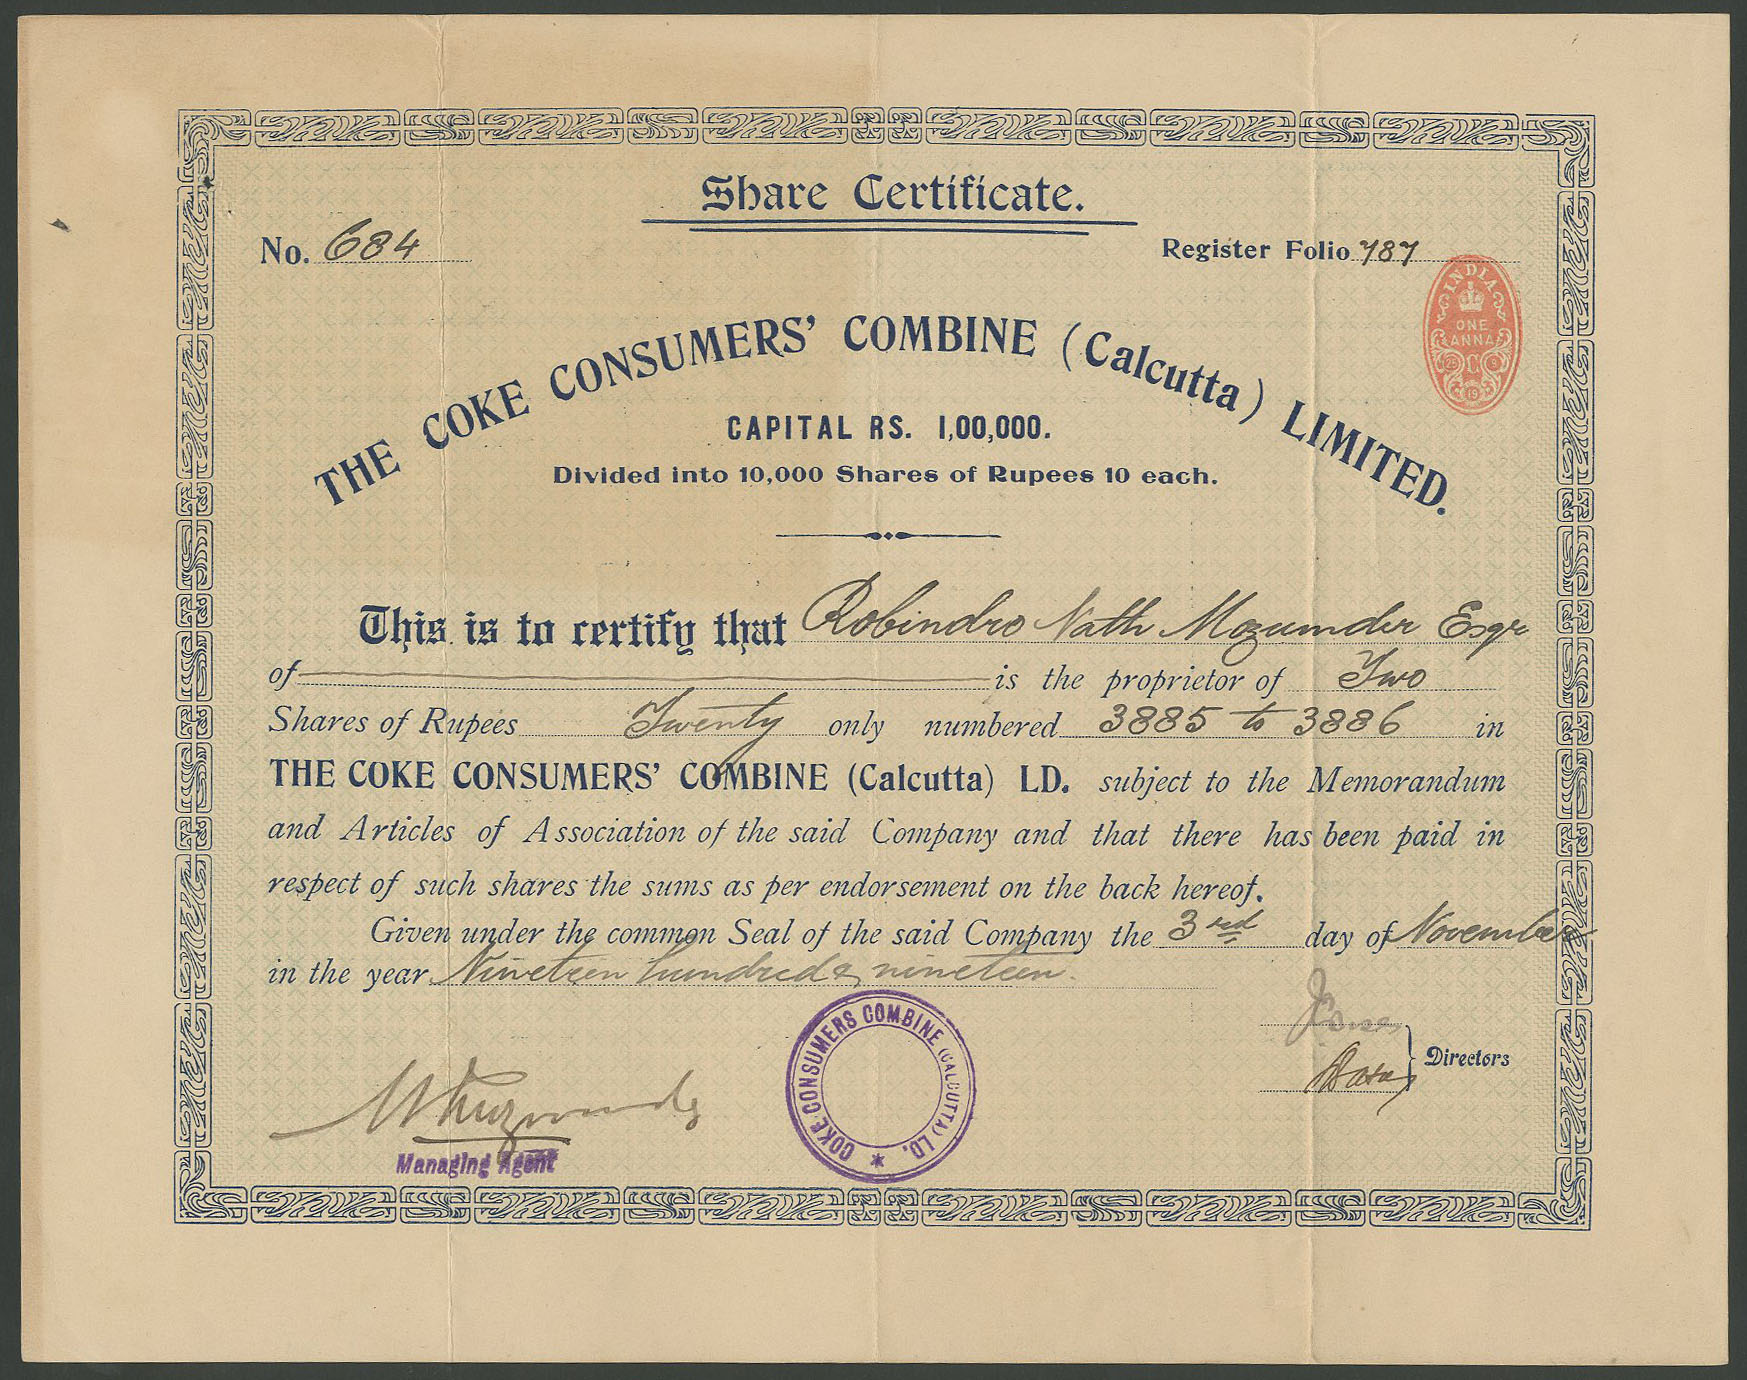 Share Certificate.
No. 684
Register Folio 787
INDIA
ONE
ANNA
25 C 9
19
THE COKE CONSUMERS' COMBINE (Calcutta) LIMITED.
CAPITAL RS. 1,00,000.
Divided into 10,000 Shares of Rupees 10 each.
This is to certify that Robindro Nath Mozumder Esqr
of is the proprietor of Two
Shares of Rupees Twenty only numbered 3885 to 3886 in
THE COKE CONSUMERS' COMBINE (Calcutta) LD. subject to the Memorandum
and Articles of Association of the said Company and that there has been paid in
respect of such shares the sums as per endorsement on the back hereof.
Given under the common Seal of the said Company the 3rd day of November
in the year Nineteen hundred & nineteen.
COKE CONSUMERS COMBINE (CALCUTTA) LD.
Directors
Managing Agent